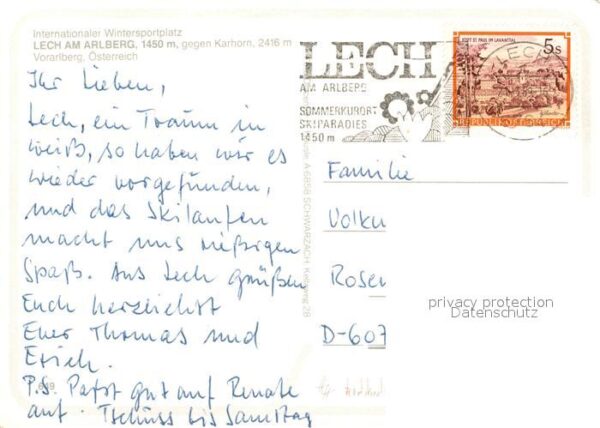 Internationaler Wintersportplatz
LECH AM ARLBERG, 1450 m, gegen Karhorn, 2416 m
Vorarlberg, Österreich
LECH
AM ARLBERG
SOMMERKURORT
SKIPARADIES
1450 m
STIFT ST. PAUL IM LAVANTTAL
5s
REPUBLIK ÖSTERREICH
LECH
Ihr Lieben,
Lech, ein Traum in
weiß, so haben wir es
wieder vorgefunden,
und das Skilaufen
macht uns riesigen
Spaß. Aus Lech grüßen
Euch herzlichst
Euer Thomas und
Erich.
P.S. Passt gut auf Renate
auf. Tschüss bis Samstag
A 6858 SCHWARZACH
Familie
Volku
Rosen
D-607
privacy protection
Datenschutz